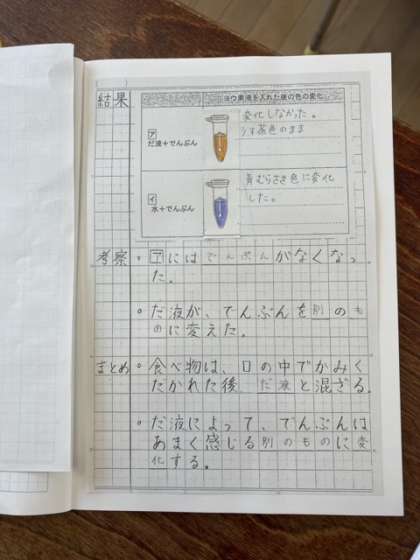 結果
ヨウ素液を入れた後の色の変化
ア
だ液+でんぷん
変化しなかった。
うす茶色のまま
イ
水+でんぷん
青むらさき色に変化
した。
考察 ・アにはでんぷんがなくなっ
た。
・だ液が、でんぷんを別のも
のに変えた。
まとめ・食べ物は、口の中でかみく
だかれた後、だ液と混ざる。
・だ液によって、でんぷんは
あまく感じる別のものに変
化する。